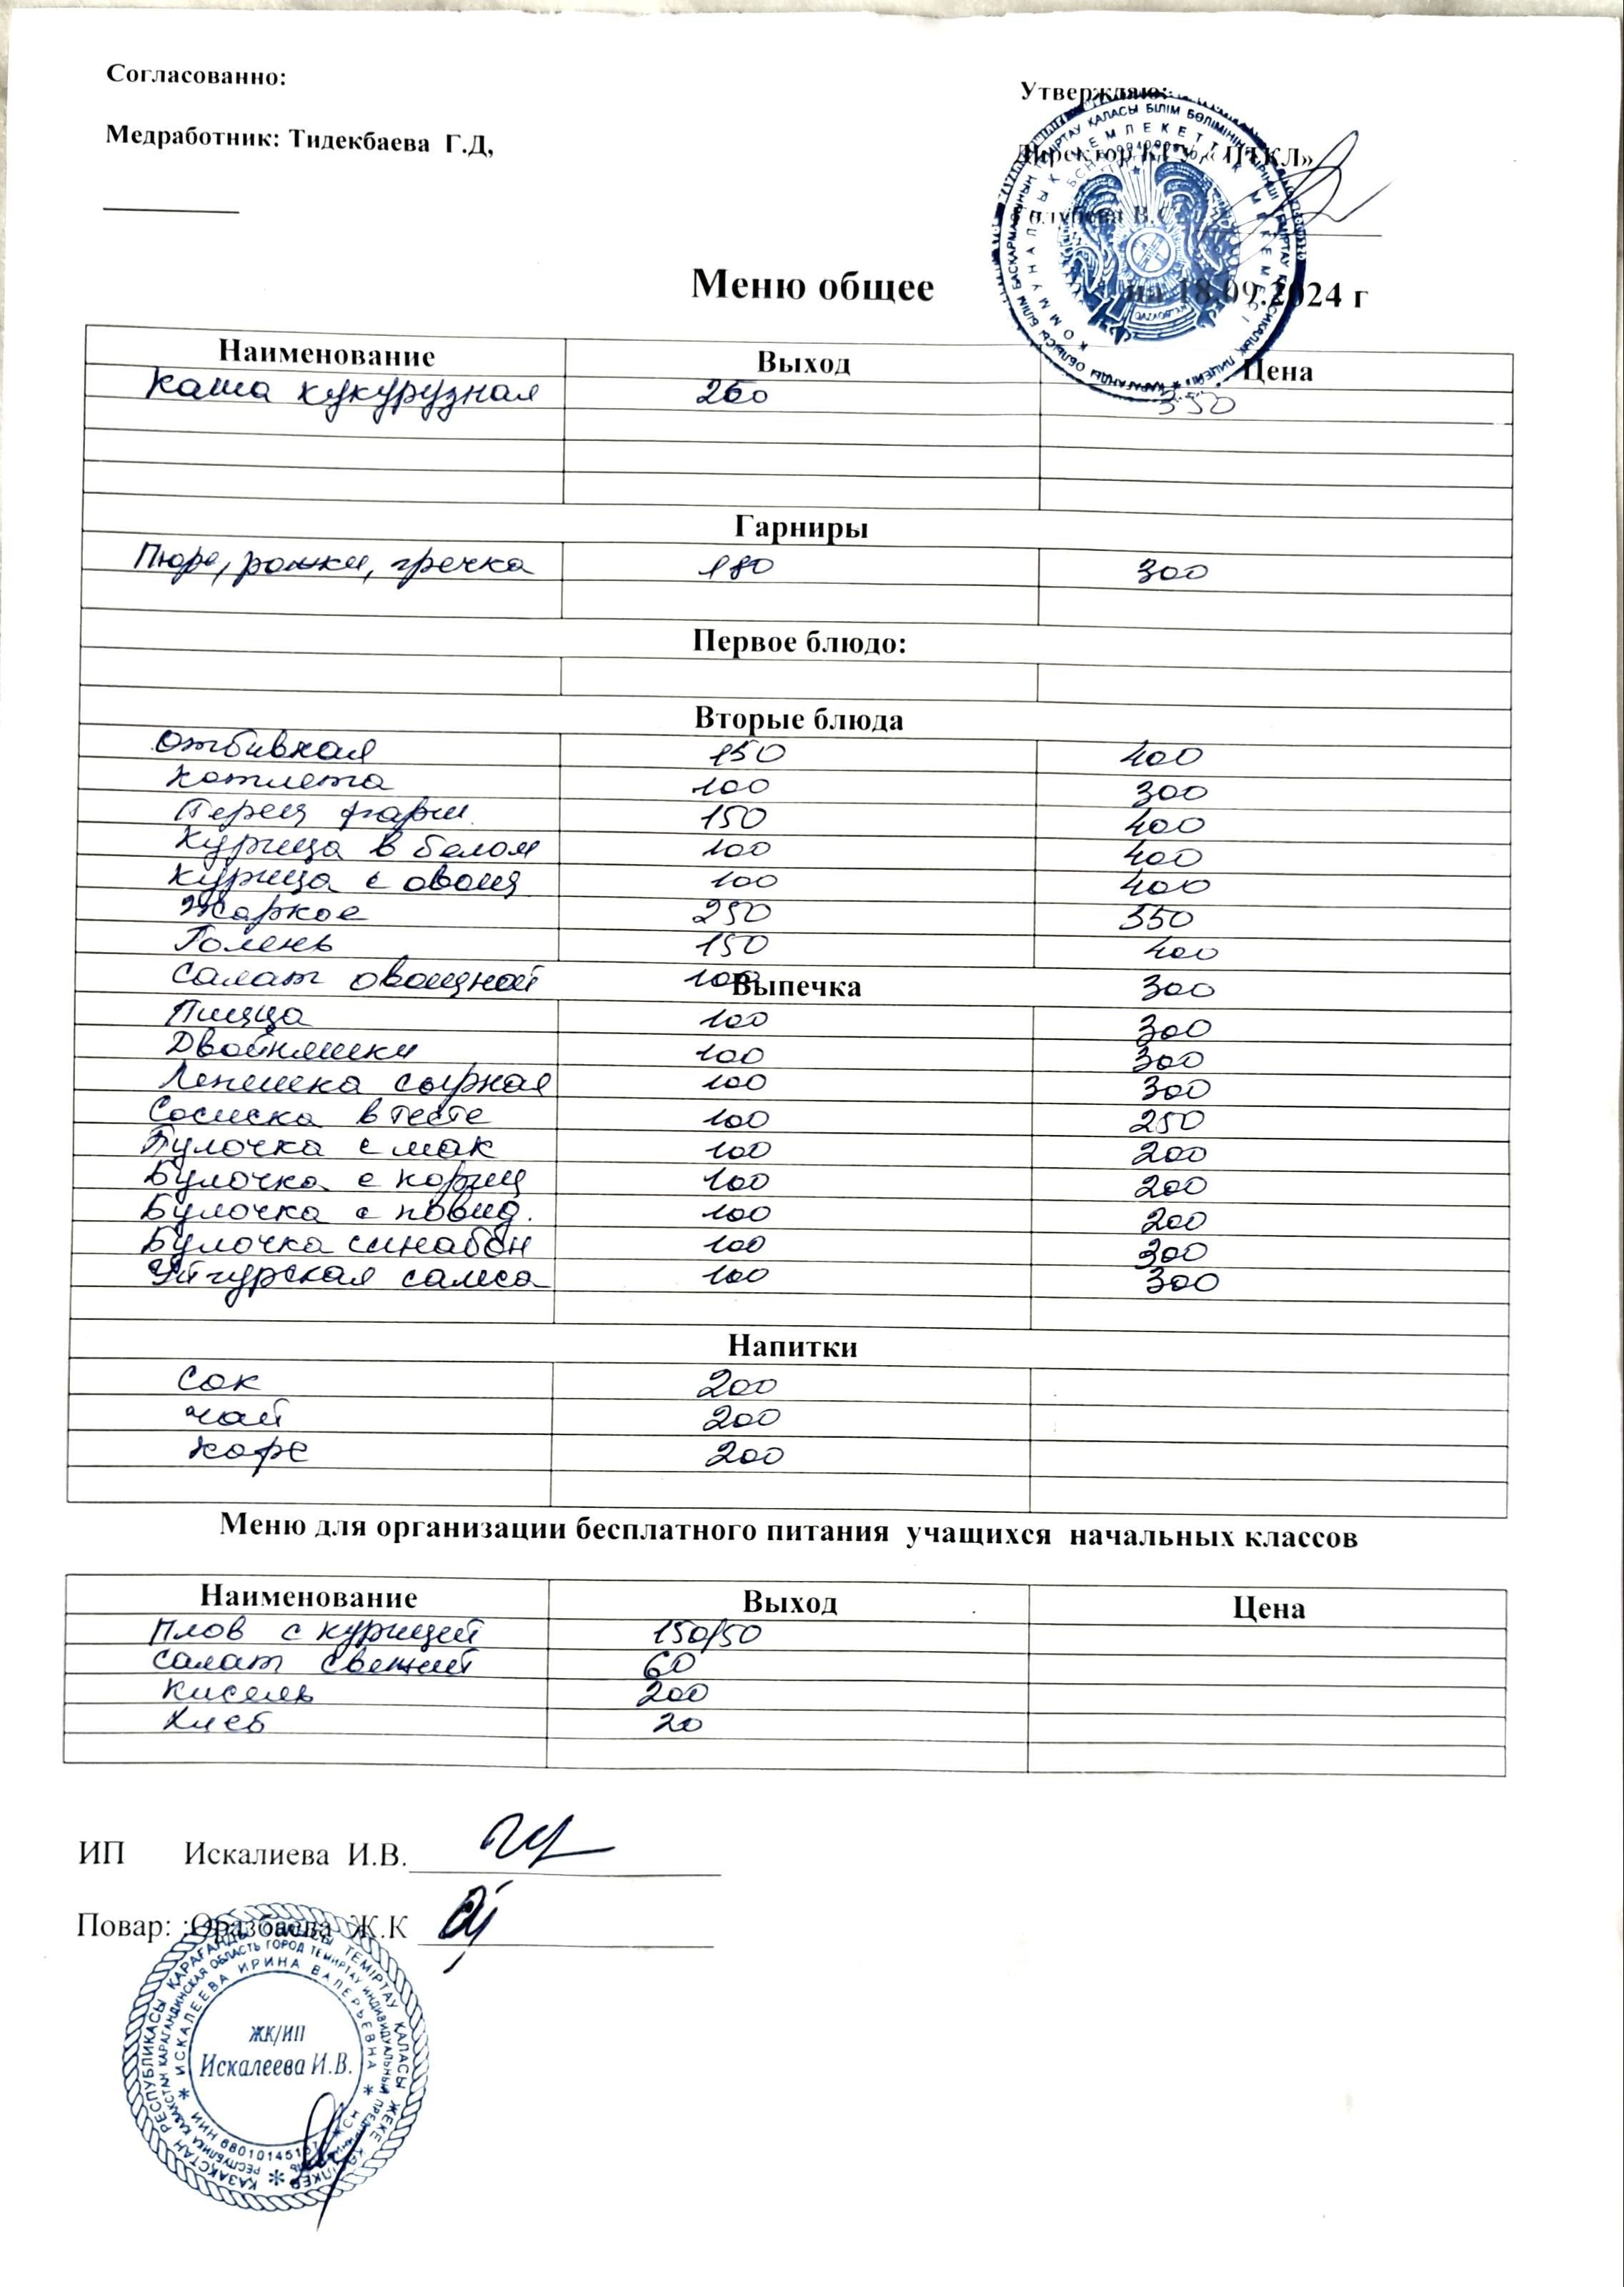 Согласованно:
Утверждаю:
Медработник: Тидекбаева Г.Д,
Директор КГУ «ПТКЛ»
В.С.
Меню общее на 18.09.2024 г
Наименование Выход Цена
Каша кукурузная 250 350
Гарниры
Пюре, рожки, гречка 180 300
Первое блюдо:
Вторые блюда
Отбивная 150 400
Котлета 100 300
Перец фарш. 150 400
Курица в белом 100 400
Курица с овощ 100 400
Жаркое 250 550
Голень 150 400
Салат овощной 100 300
Выпечка
Пицца 100 300
Двойняшки 100 300
Лепешка сырная 100 300
Сосиска в тесте 100 250
Булочка с мак 100 200
Булочка с кориц 100 200
Булочка с повид. 100 200
Булочка синабон 100 300
Уйгурская самса 100 300
Напитки
Сок 200
Чай 200
Кофе 200
Меню для организации бесплатного питания учащихся начальных классов
Наименование Выход Цена
Плов с курицей 150/50
Салат свежий 60
Кисель 200
Хлеб 20
ИП Искалиева И.В.
Повар: :Оразбаева Ж.К
ҚАЗАҚСТАН РЕСПУБЛИКАСЫ ҚАРАҒАНДЫ ОБЛЫСЫ ТЕМІРТАУ ҚАЛАСЫ ЖЕКЕ КӘСІПКЕР
РЕСПУБЛИКА КАЗАХСТАН КАРАГАНДИНСКАЯ ОБЛАСТЬ ГОРОД ТЕМИРТАУ ИНДИВИДУАЛЬНЫЙ
ИСКАЛЕЕВА ИРИНА ВАЛЕРЬЕВНА
ЖК/ИП
Искалеева И.В.